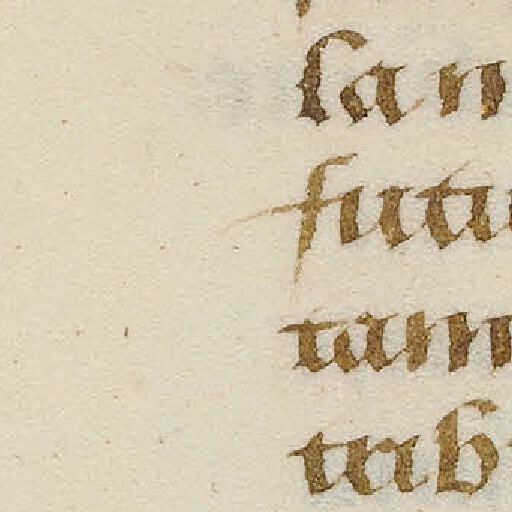 san
futu
tam
trib